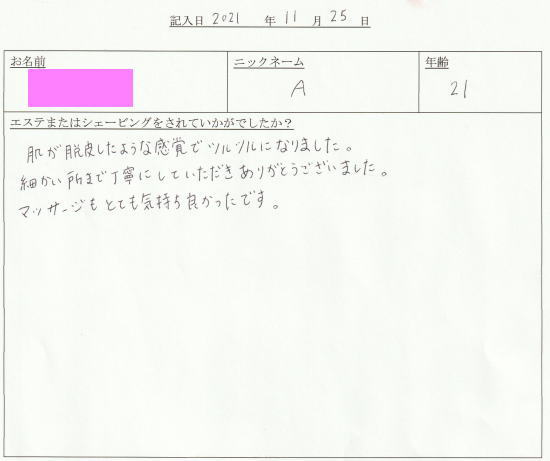 記入日 2021 年 11 月 25 日
お名前 ニックネーム 年齢
A 21
エステまたはシェービングをされていかがでしたか？
肌が脱皮したような感覚でツルツルになりました。
細かい所まで丁寧にしていただきありがとうございました。
マッサージもとても気持ち良かったです。